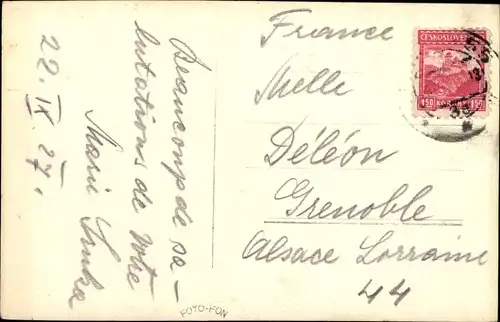 22. IX. 27.
Beaucoup de sa-
lutations de votre
Marie
France
Melle
Déléon
Grenoble
Alsace Lorraine
44
ČESKOSLOVENSKO
1·50 KORUNY 1·50
FOTO-FON